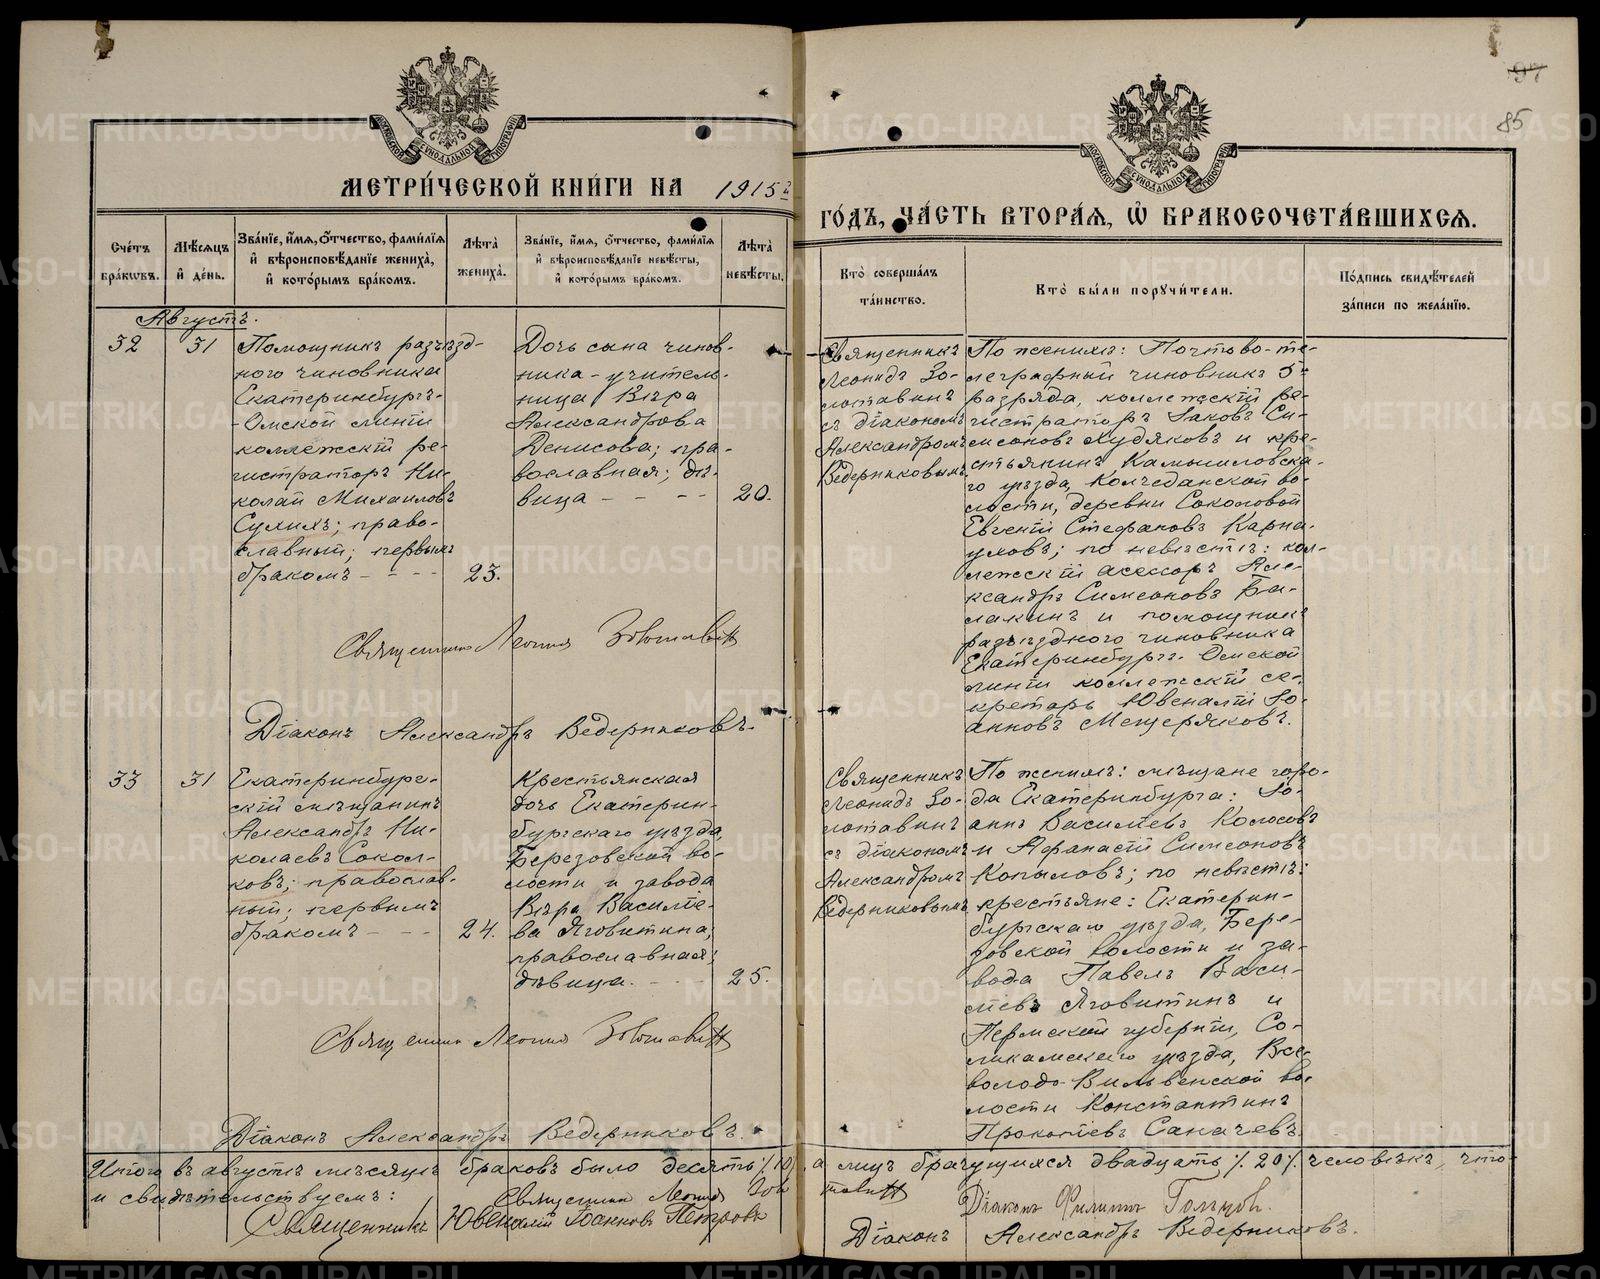 97
85
МЕТРИ́ЧЕСКОЙ КНИ́ГИ НА 1915 г.
ГО́ДЪ, ЧА́СТЬ ВТОРА́Я, Ѡ҆ БРАКОСОЧЕТА́ВШИХСЯ.
Сче́тъ бра́кѡвъ.
Мѣ́сяцъ и҆ де́нь.
Зва́нїе, и҆́мя, ѻ҆́тчество, фами́лїя и҆ вѣроисповѣ́данїе жениха̀, и҆ кото́рымъ бра́комъ.
Лѣ́та жениха̀.
Зва́нїе, и҆́мя, ѻ҆́тчество, фами́лїя и҆ вѣроисповѣ́данїе невѣ́сты, и҆ кото́рымъ бра́комъ.
Лѣ́та невѣ́сты.
Кто̀ соверша́лъ та́инство.
Кто̀ бы́ли поручи́тели.
По́дпись свидѣ́телей за́писи по жела́нїю.
Августъ.
32
31
Помощникъ разъѣзд-
ного чиновника
Екатеринбургъ-
-Омской линіи
коллежскій ре-
гистраторъ Ни-
колай Михаиловъ
Сухихъ; право-
славный; первымъ
бракомъ - - - -
23.
Дочь сына чинов-
ника - учитель-
ница Вѣра
Александрова
Денисова; пра-
вославная; дѣ-
вица - - - -
20.
Священникъ
Леонидъ Зо-
лотавинъ
съ діакономъ
Александромъ
Ведерниковымъ
По женихѣ: Почтово-те-
леграфный чиновникъ 5го
разряда, коллежскій ре-
гистраторъ Іаковъ Си-
меоновъ Худяковъ и кре-
стьянинъ Камышловска-
го уѣзда, Колчеданской во-
лости, деревни Соколовой
Евгеній Стефановъ Карпа-
уховъ; по невѣстѣ: кол-
лежскій асессоръ Але-
ксандръ Симеоновъ Ба-
лакинъ и помощникъ
разъѣздного чиновника
Екатеринбургъ-Омской
линіи коллежскій се-
кретарь Ювеналій Іо-
анновъ Мещеряковъ.
Священникъ Леонидъ Золотавинъ
Діаконъ Александръ Ведерниковъ.
33
31
Екатеринбург-
скій мѣщанинъ
Александръ Ни-
колаевъ Сокол-
ковъ; православ-
ный; первымъ
бракомъ - - -
24.
Крестьянская
дочь Екатерин-
бургскаго уѣзда,
Березовской во-
лости и завода
Вѣра Василіе-
ва Яговитина;
православная;
дѣвица. - - -
25.
Священникъ
Леонидъ Зо-
лотавинъ
съ діакономъ
Александромъ
Ведерниковымъ
По женихѣ: мѣщане горо-
да Екатеринбурга: Іо-
аннъ Василіевъ Колосовъ
и Аѳанасій Симеоновъ
Копыловъ; по невѣстѣ:
крестьяне: Екатерин-
бургскаго уѣзда, Бере-
зовской волости и за-
вода Павелъ Васи-
ліевъ Яговитинъ и
Пермской губерніи, Со-
ликамскаго уѣзда, Все-
володо-Вильвенской во-
лости Константинъ
Прокопіевъ Саначевъ.
Священникъ Леонидъ Золотавинъ
Діаконъ Александръ Ведерниковъ.
Итого въ августѣ мѣсяцѣ браковъ было десять /10/, а лицъ брачущихся двадцать /20/ человѣкъ, что
и свидѣтельствуемъ: Священникъ Леонидъ Золотавинъ
Діаконъ Филиппъ Гольцовъ.
Священникъ Ювеналій Іоанновъ Петровъ
Діаконъ Александръ Ведерниковъ.
METRIKI.GASO-URAL.RU